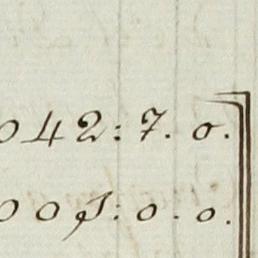 042: 7. 0.
005: 0. 0.